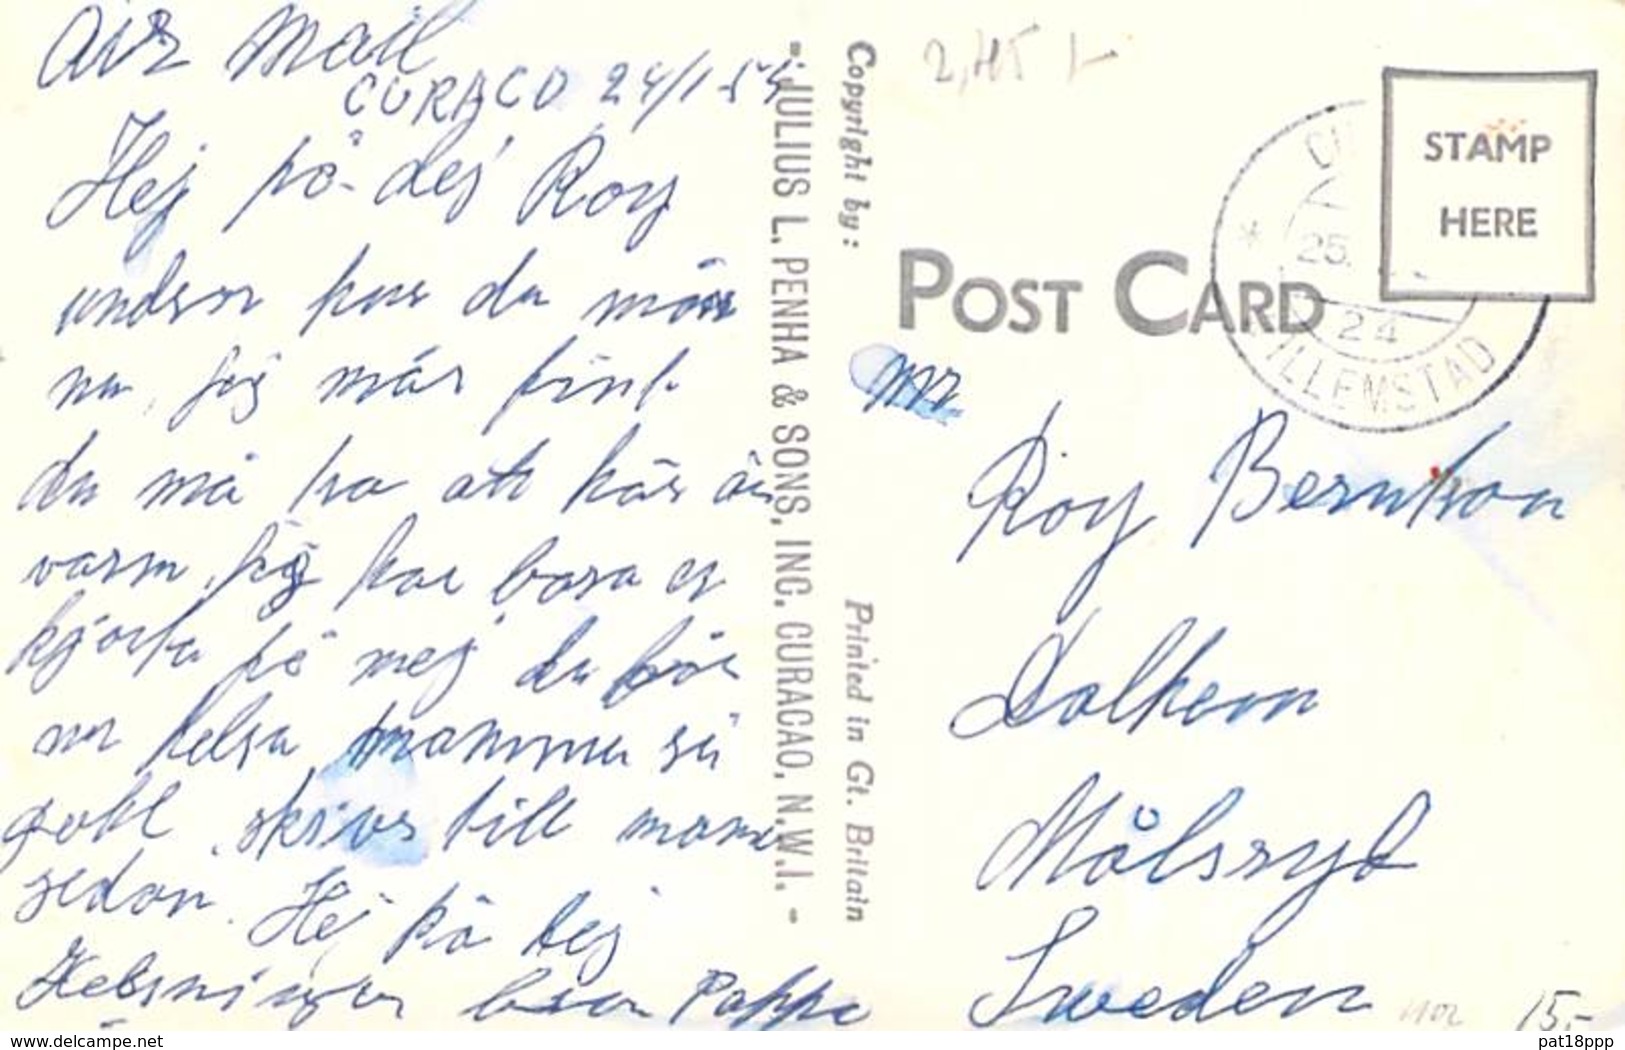 Air Mail
CURACO 24/1-54
Hej på dej Roy
undrar hur du mår
nu, jej mår fint
du må tro att här är
varm, jag har bara en
skjorta på mej du kan
nu helsa mamma så
gott. skriver till mamma
sedan. Hej på dej
Helsningar från Pappa
- JULIUS L. PENHA & SONS, INC. CURACAO, N.W.I. -
Copyright by:
Printed in Gt. Britain
2,45
POST CARD
STAMP
HERE
25.
24
WILLEMSTAD
Mr
Roy Berntson
Dalhem
Målsryd
Sweden
15:-
delcampe.net
pat18ppp